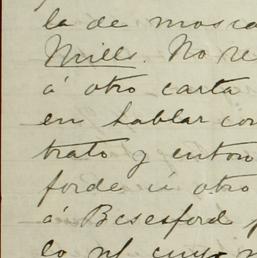 la de mosca
Mills. No re
á otro carta
en hablar con
trato y enton
forde ú otro
á Beresford
lo